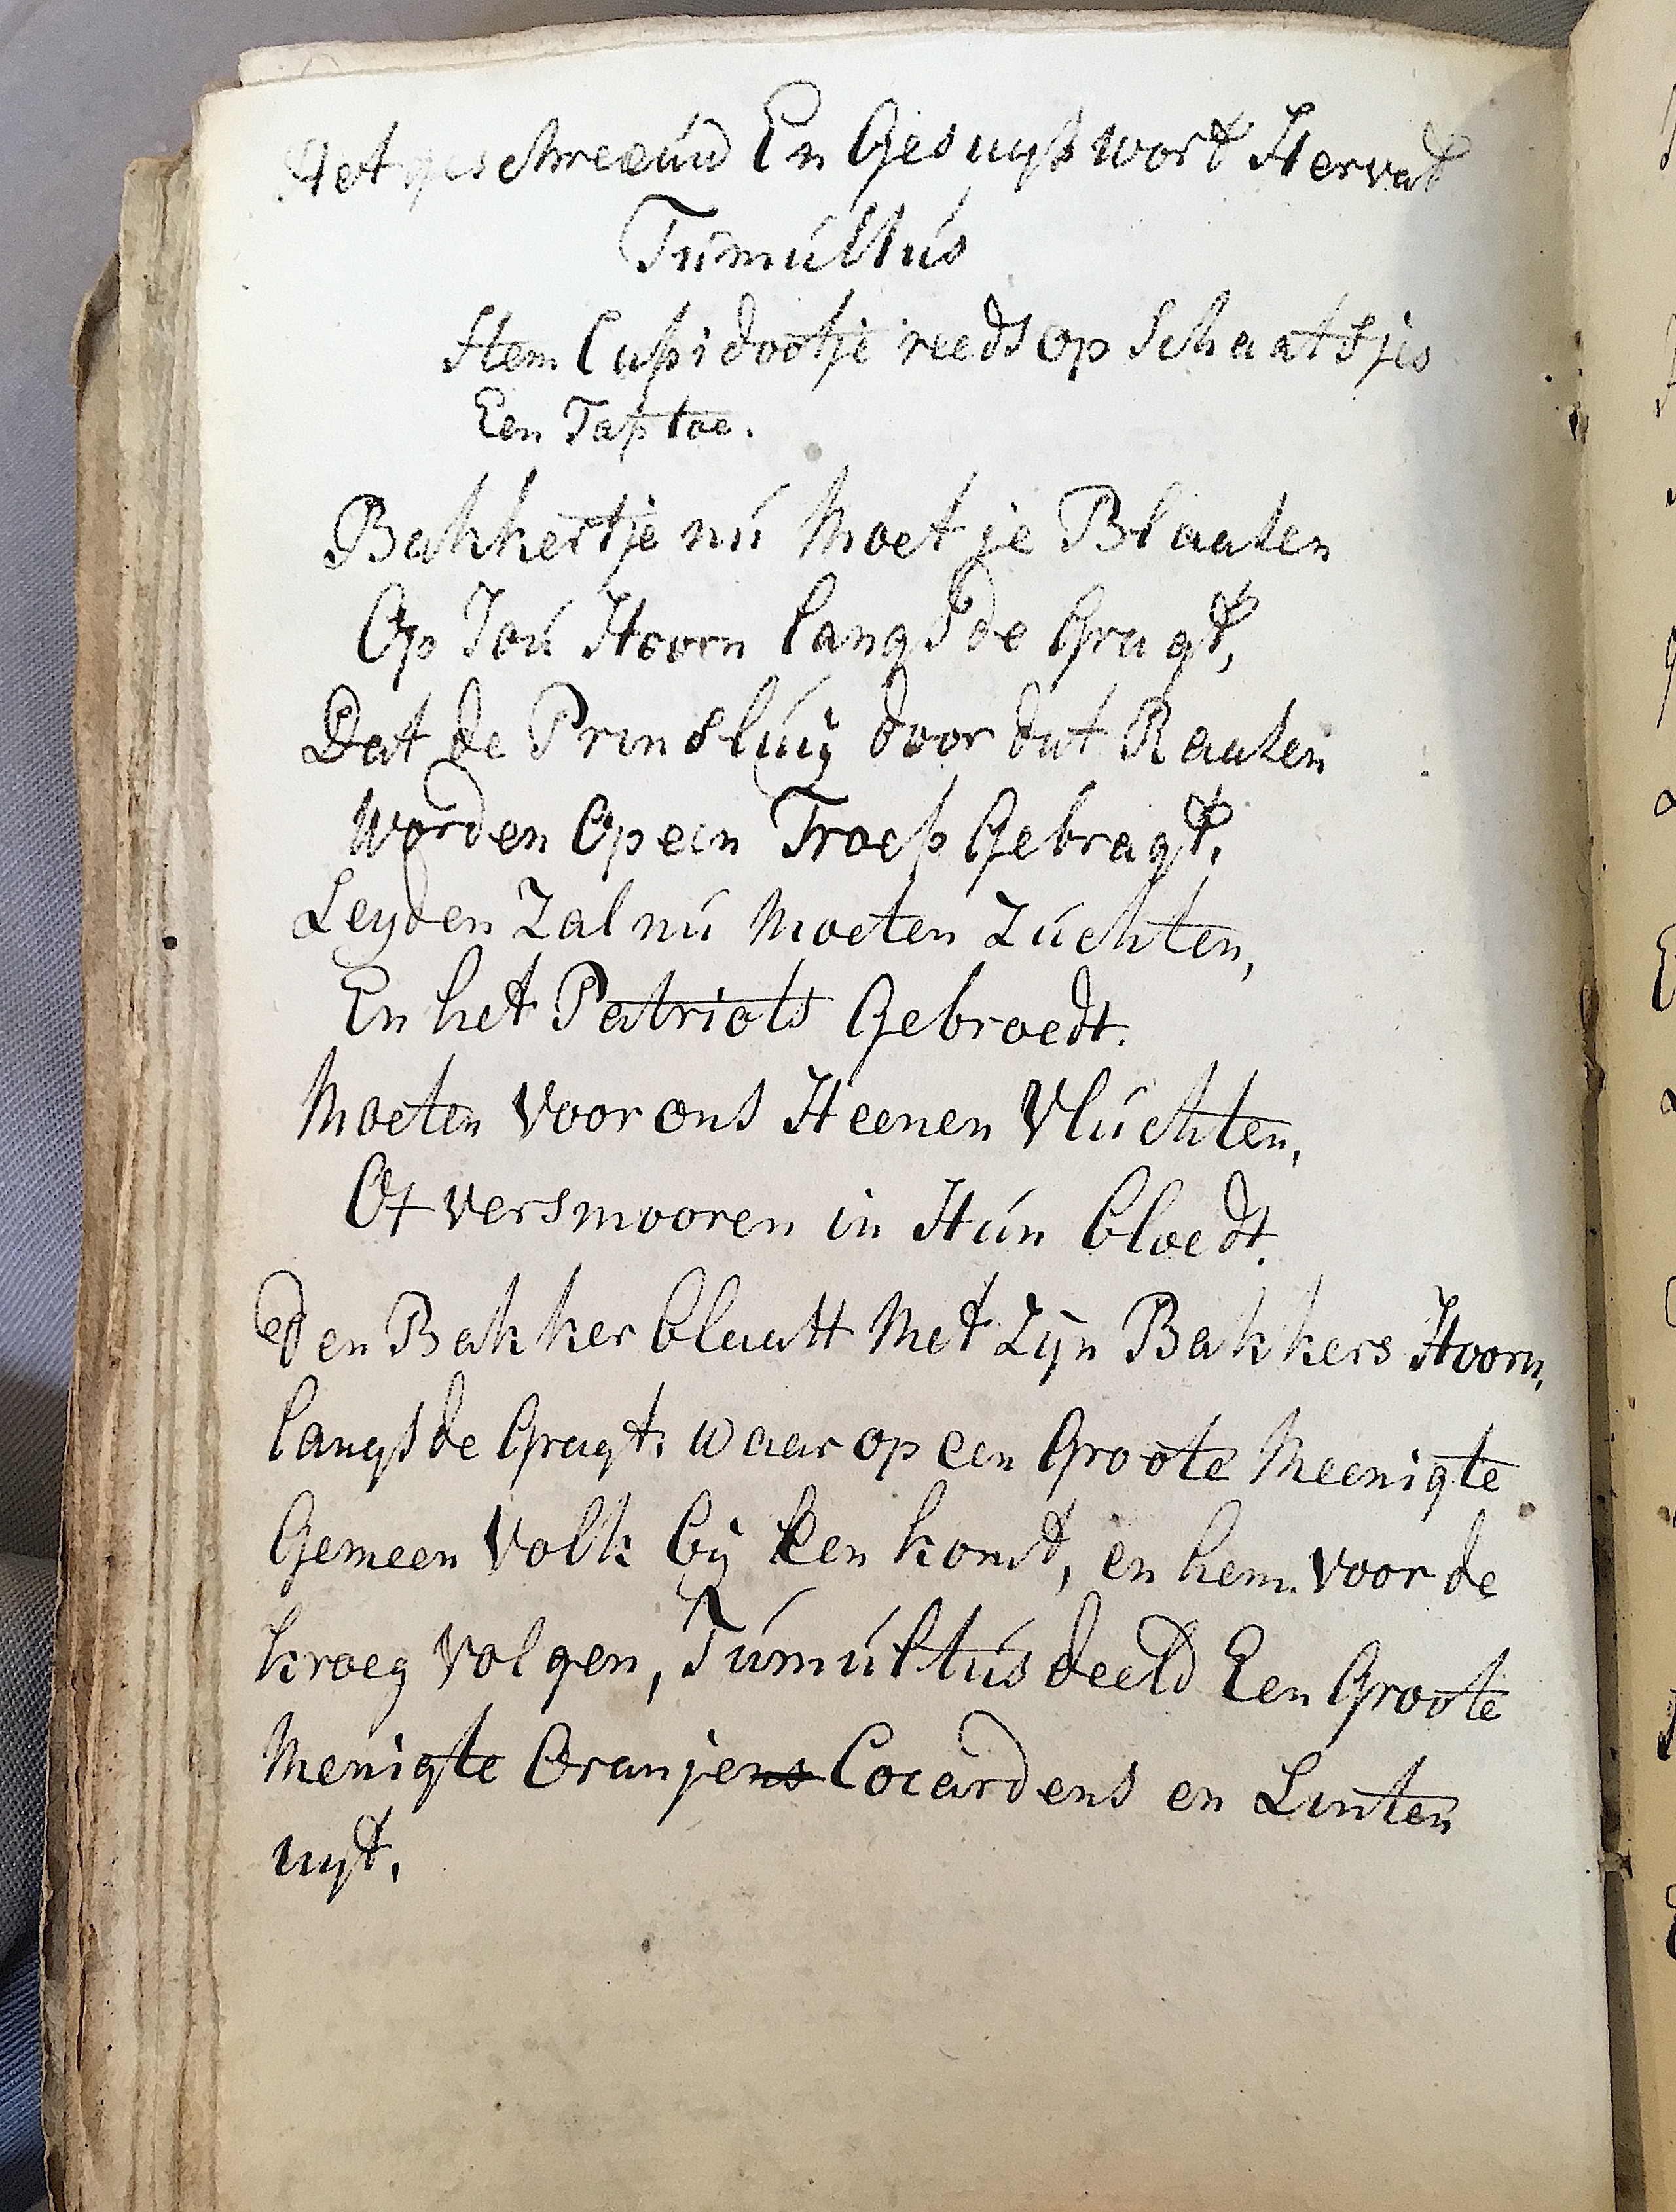 Het geschreeuw En Gesuys wort Hervat
Tumultus
Stem Cupidootje reeds op Schaatsjes
Een Taptoe.
Bakkertje nu Moet je Blaaten
Op Jou Hoorn langs de Gragt,
Dat de Prinsluij door dat Raaten
Worden Op een Troep Gebragt,
Leyden Zal nu Moeten Zuchten,
En het Patriots Gebroedt.
Moeten Voor ons Heenen Vluchten,
Of versmooren in Hun bloedt.
Den Bakker blaatt Met Zyn Bakkers Hoorn,
langs de Gragt, waar op een Groote Meenigte
Gemeen Volk by Een komt, en hem voor de
kroeg Volgen, Tumultus deeld Een Groote
Menigte Oranjens Cocardens en Linten
uyt.